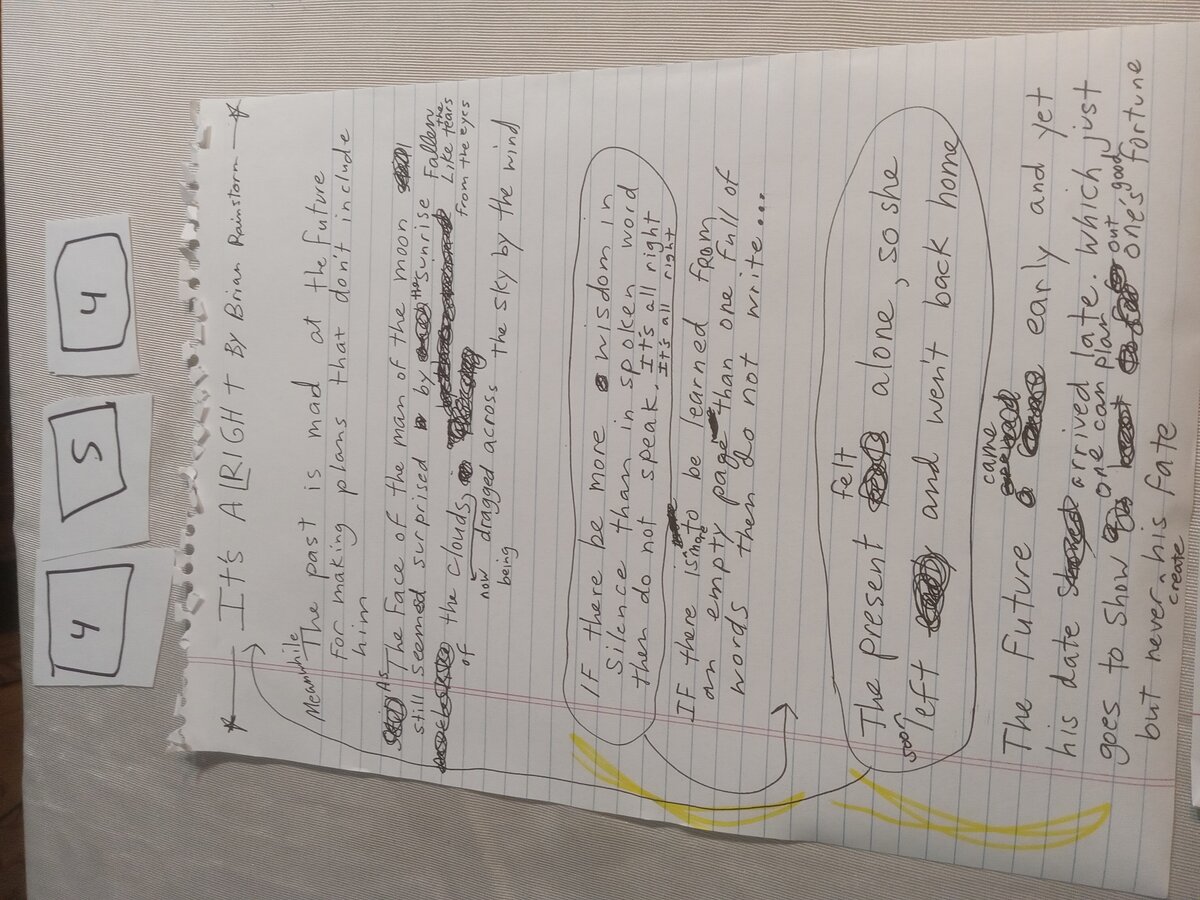 4 5 4
It's ALRIGHT By Brian Rainstorm
Meanwhile
The past is mad at the future
For making plans that don't include
him
As The Face of the man of the moon
still seemed surprised by the sunrise Fallen
of the clouds, Like the tears
from the eyes
now dragged across the sky by the wind
being
IF there be more wisdom in
Silence than in spoken word
then do not speak. It's all right
It's all right
IF there is more to be learned from
an empty page than one full of
words then do not write...
The present felt alone, so she
soon left and wen't back home
The Future came early and yet
his date arrived late. Which just
goes to show one can plan out one's good fortune
but never create his fate